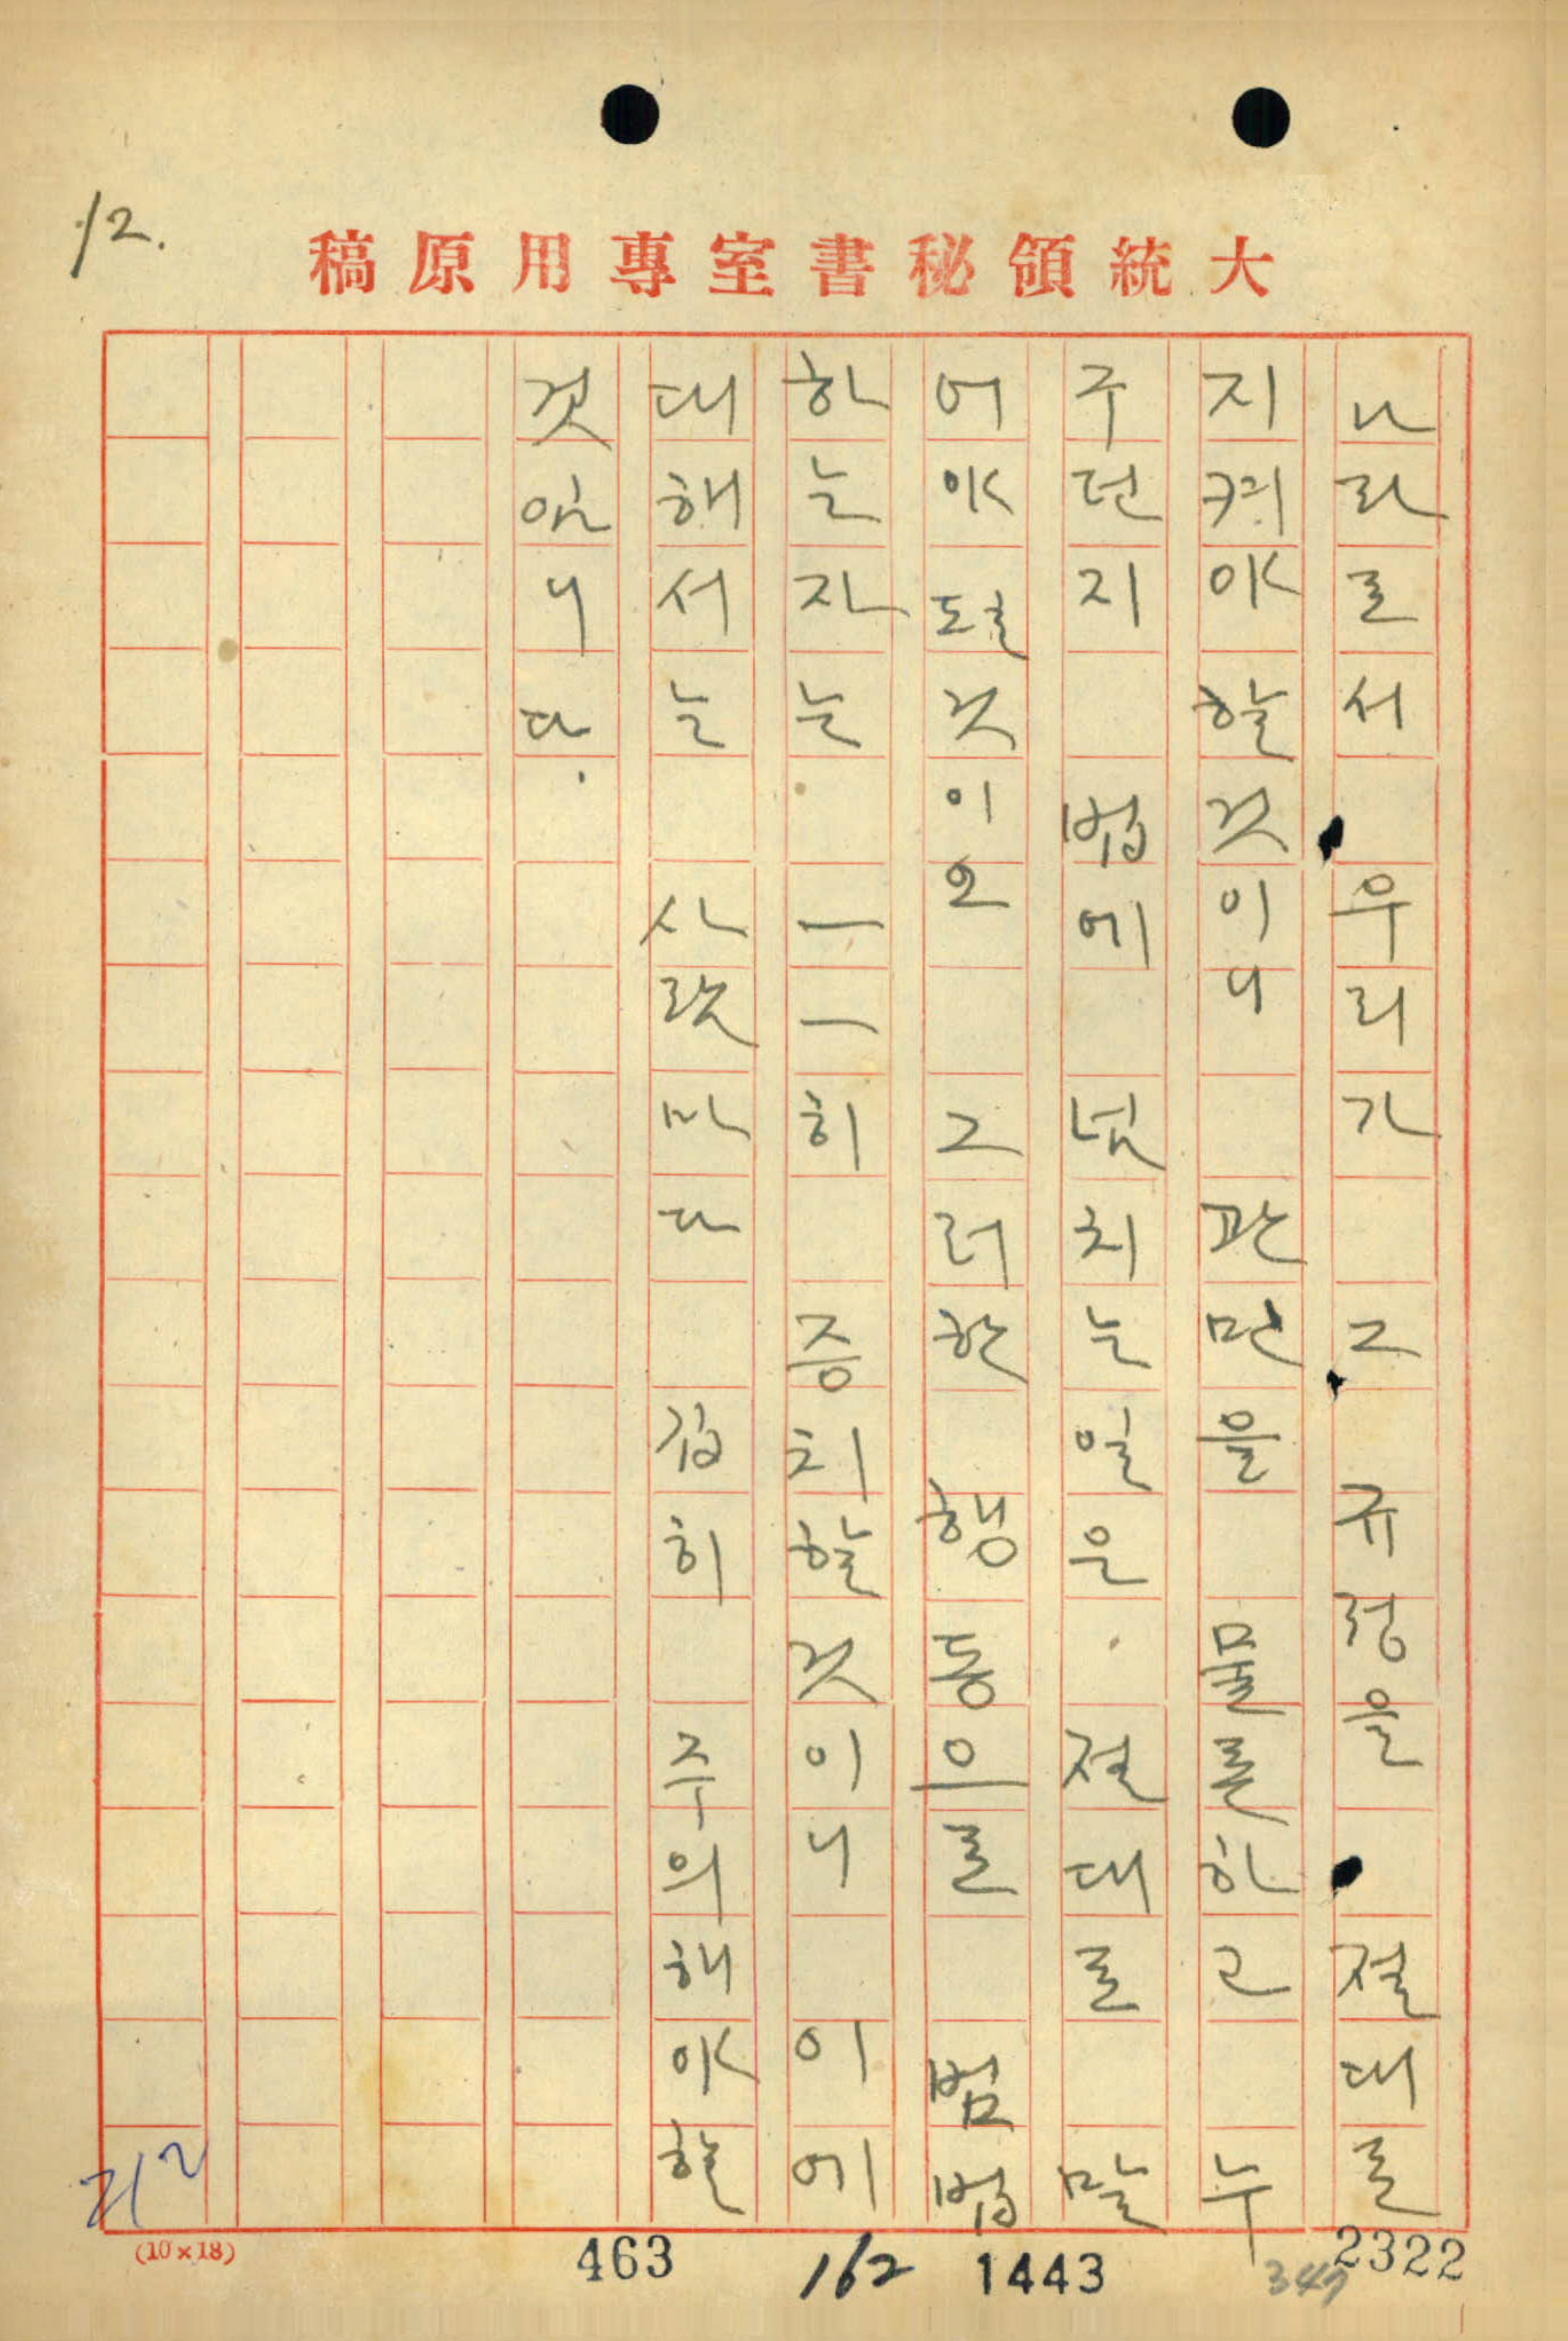 12.
大統領秘書室專用原稿
나라로서 우리가 그 규정을 절대로
지켜야할것이니 관민을 물론하고 누
구던지 법에 넘치는일은 절대로 말
어야될것이오 그러한 행동으로 범법
하는자는 一一히 증치할것이니 이에
대해서는 사람마다 깁히 주의해야할
것임니다.
(10×18)
463
162
1443
2322